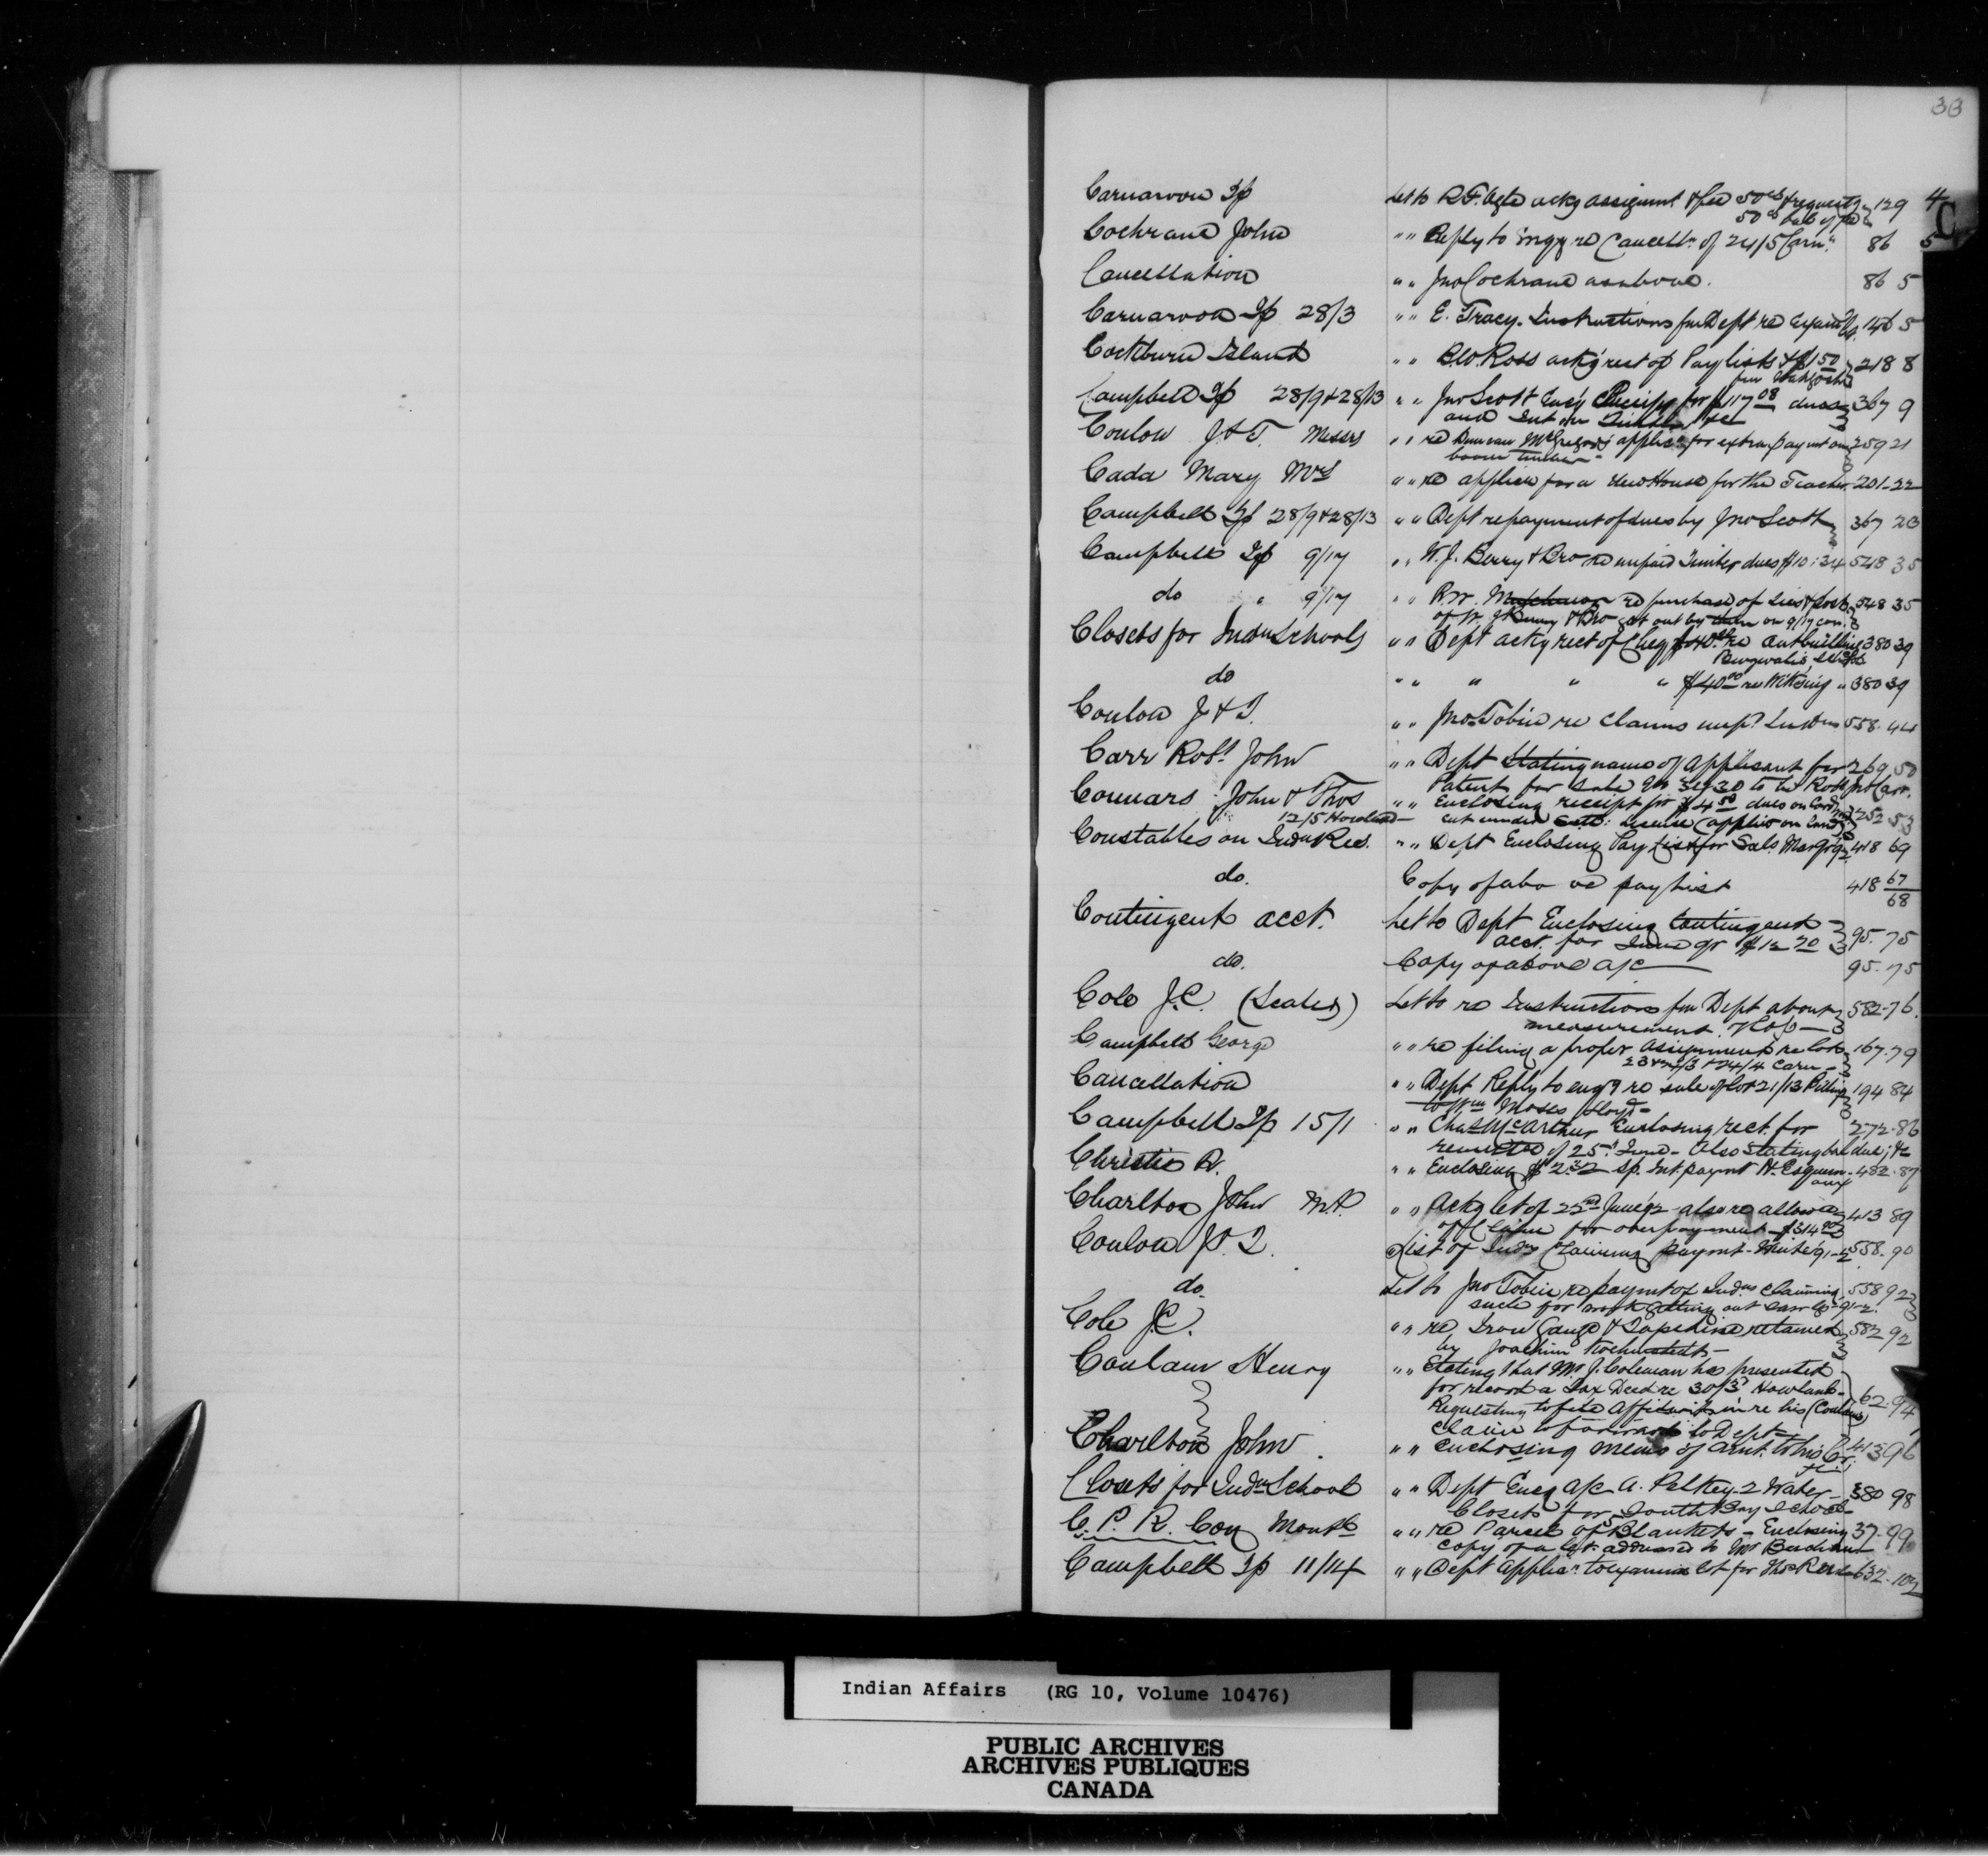 33
C
Carnarvon Tp Let to R.F. Agts ackg assignmt & fee 50cts & requestg 129 4
50cts bal of fee
Cochrane John " " Reply to inqy re Cancelln of 24/5 Carn. 86 5
Cancellation " " Jno Cochrane as above. 86 5
Carnarvon Tp 28/3 " " E. Tracy. Instructions fm Dept re 146 5
Cockburn Island " " B.W. Ross ackg rect of Paylists & $150 218 8
Campbell Tp 28/9 & 28/13 " " Jno Scott Encg Receipt for $17 08 dues 367 9
and Int on
Conlon J & T. Messrs " " re Duncan McGregor's applicn for extra paymt on 259 21
boom timber
Cada Mary Mrs " " re applicn for a new House for the Teacher 201-22
Campbell Tp 28/9 & 28/13 " " Dept repayment of dues by Jno Scott 367 23
Campbell Tp 9/17 " " W.J. Berry & Bro re unpaid Timber dues $10.34 548 35
do " 9/17 " " re purchase of Ties & Posts 548 35
of W. J. Berry & Bro got out by on 9/17 con.
Closets for Indn Schools " " Dept ackg rect of Cheq $40.00 re outbuilding 380 39
School
do " " " " " $40 00 re " 380 39
Conlon J & T. " " Jno Tobin re claims Indians 558. 44
Carr Robt John " " Dept stating name of applicant for 269 50
Patent for Sale No to be Robt Jno Carr.
Connars John & Thos " " Enclosing receipt for $4 50 dues on Cord 252 53
12/5 Howland cut under license (applied on land)
Constables on Indn Res. " " Dept Enclosing Pay List for Sals. Mar qr 92 418 69
do. Copy of above pay list 418 67
68
Contingent acct. Let to Dept Enclosing Contingent 95. 75
acct. for June qr $12 70
do. Copy of above a/c 95. 75
Cole J.C. (Scaler) Let to re Instructions fm Dept about 582-76.
measurement of
Campbell George " " re filing a proper assignment re lots 167. 79
& 24/4 Carn
Cancellation " " Dept Reply to engy re sale of lot 21/13 Billings 194 84
to Wm Moses
Campbell Tp 15/1 " " Chas McArthur Enclosing rect. for 272. 86
of 25th June - Also stating bal due; &c
Christie R. " " Enclosing $2.32 sp. Int paymt 482. 87
Charlton John M.P. " " Ackg let of 22nd June 92 also re allowance 413 89
of Claim for over payment $314.00
Conlon J. T. List of Indns Claiming paymt - Winter 91-2 558. 90
do. Let to Jno Tobin re paymt of Indns claiming 558 92
such for work getting out saw logs 91-2.
Cole J.C. " " re Iron Gauge & Tapeline retained 582 92
by Joachim
Coulam Henry " " Stating that Mr J. Coleman has presented
for record a Tax Deed re 30/3 Howland 62. 94
Requesting to file Affidavit in re his (Coulam's)
Claim to forward to Dept
Charlton John " " Enclosing memo of amt. to his Cr. 413 96
Closets for Indn School " " Dept Encg a/c A. Pelkey 2 Water 380 98
Closets for South Bay School
C. P. R. Coy Montl " " re Parcel of 5 Blankets - Enclosing 37. 99
copy of a let addressed to Mr
Campbell Tp 11/14 " " Dept Applicn to examine lot for Thos 632. 102
Indian Affairs (RG 10, Volume 10476)
PUBLIC ARCHIVES
ARCHIVES PUBLIQUES
CANADA